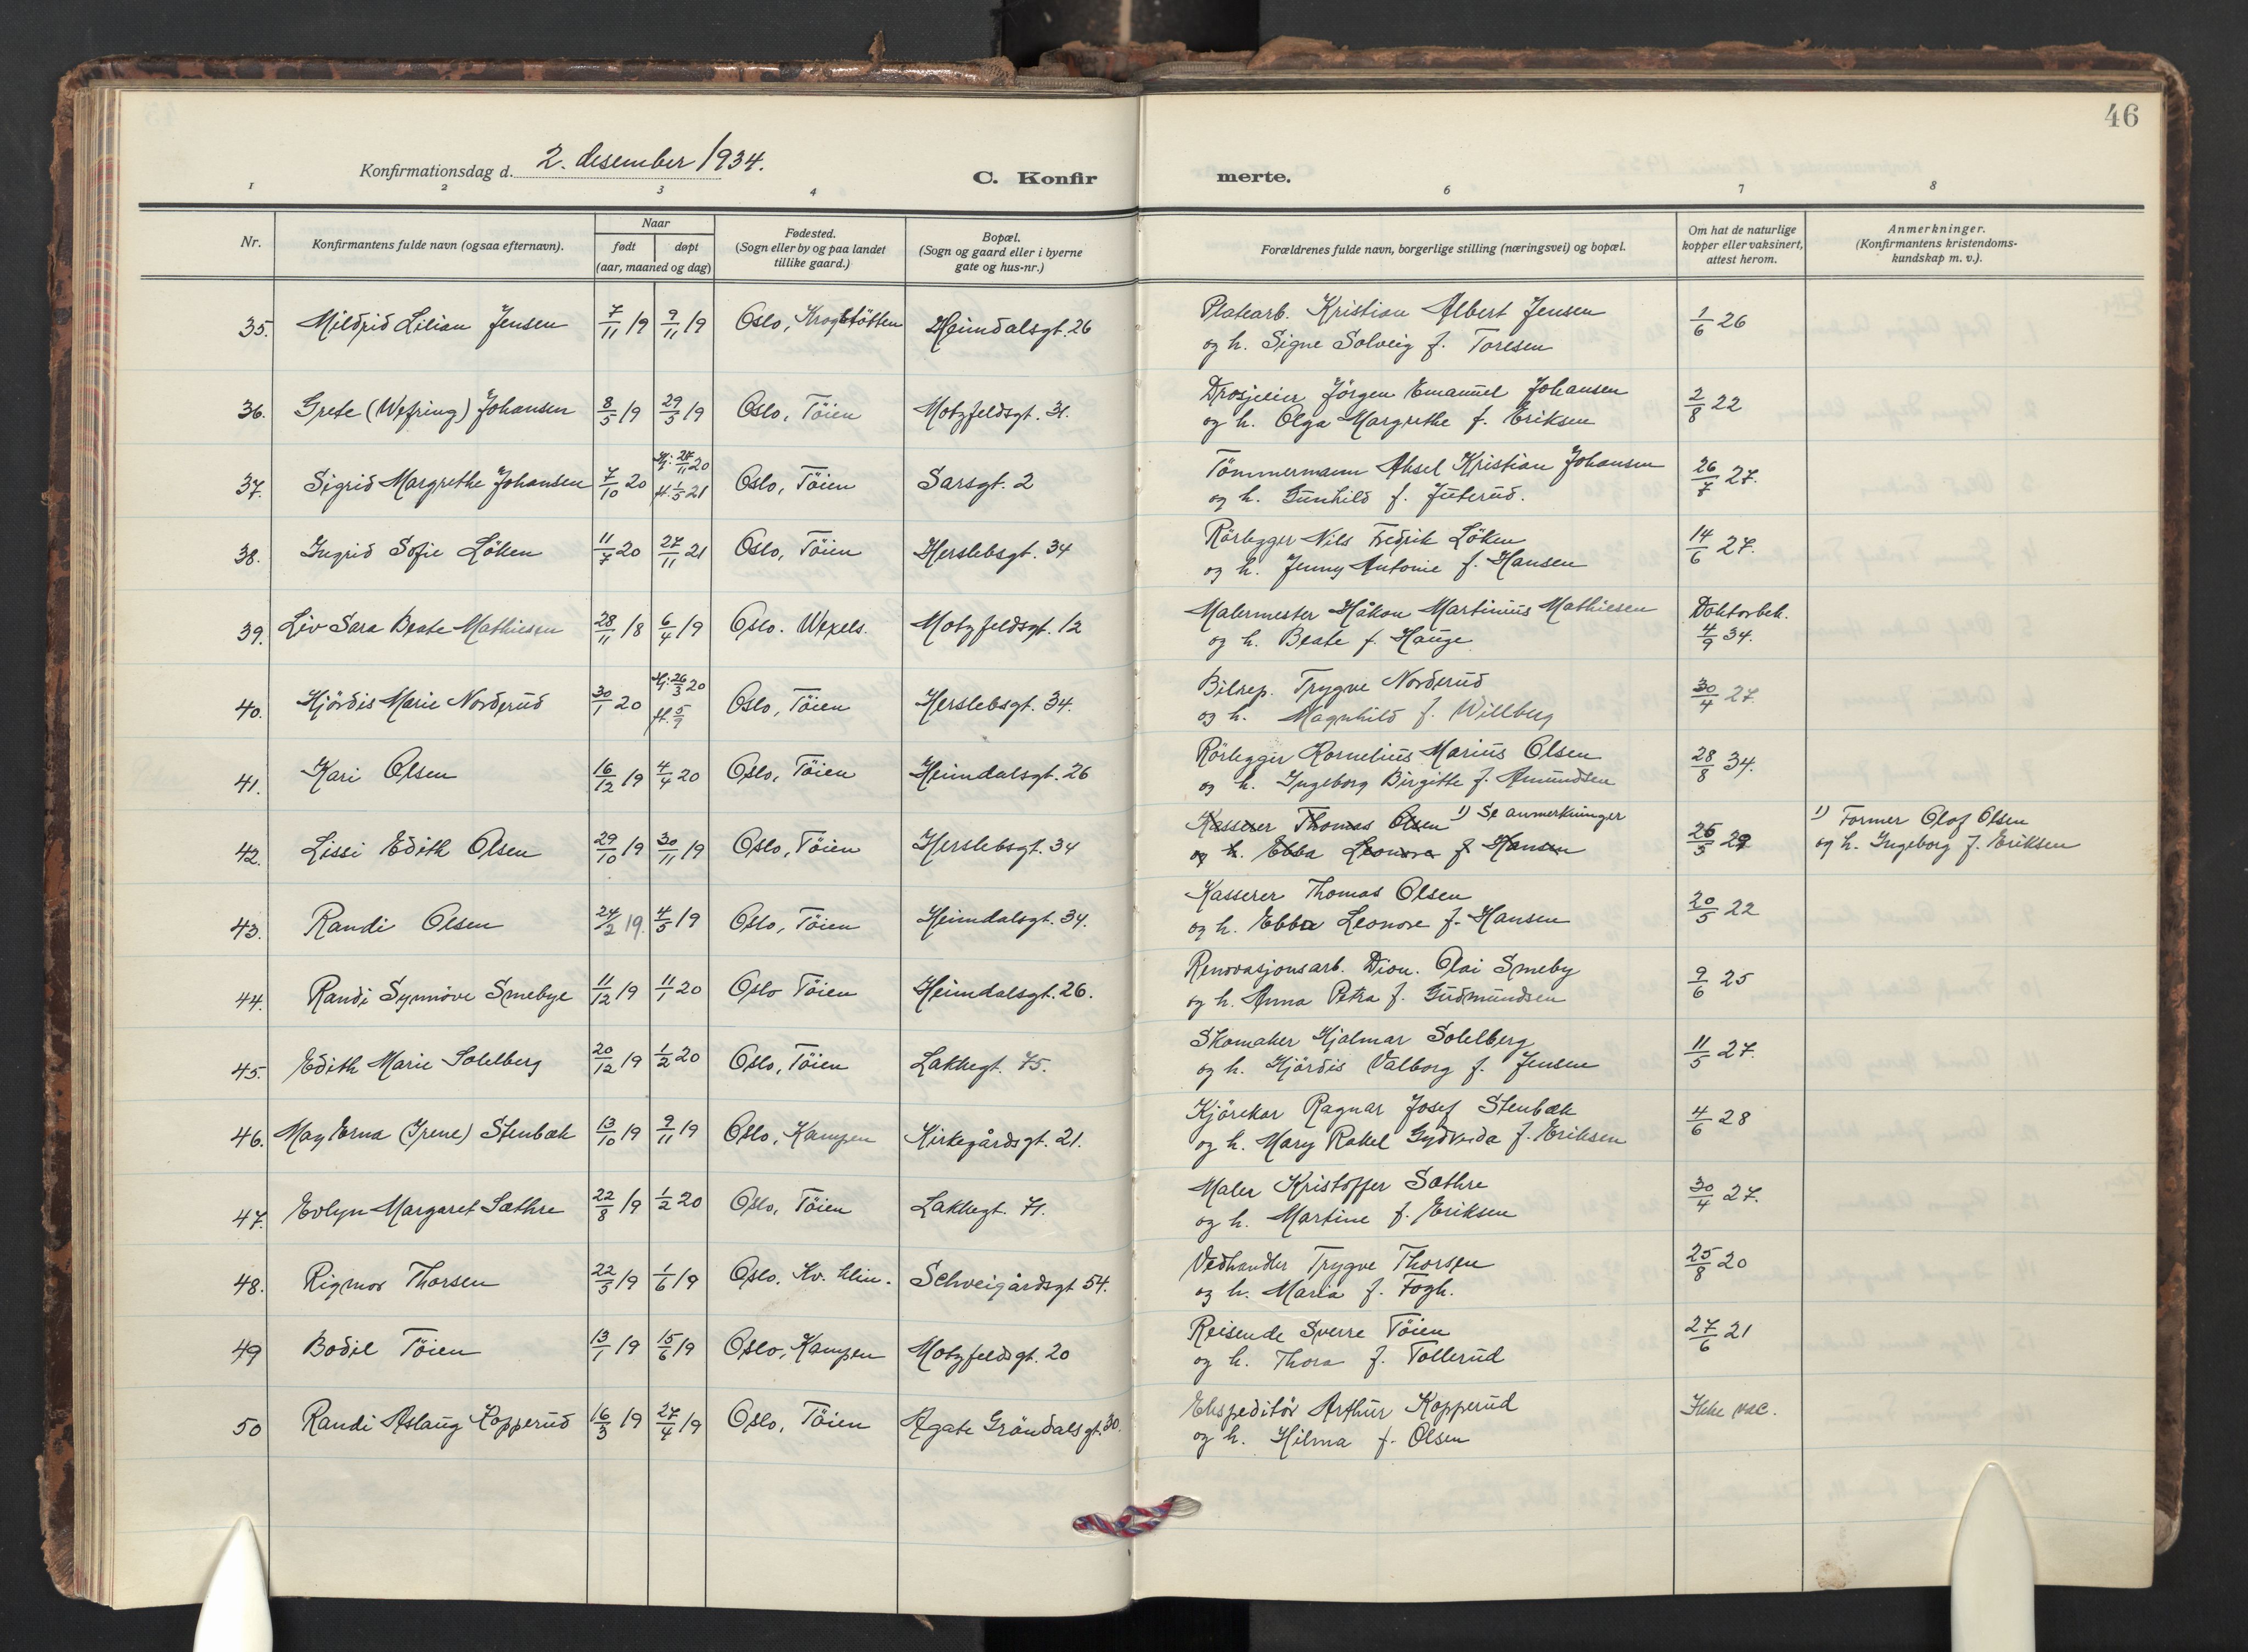 46
Konfirmationsdag d. 2. desember 1934.
C. Konfirmerte.
1 2 3 4 6 7 8
Nr. | Konfirmantens fulde navn (ogsaa efternavn). | Naar født døpt (aar, maaned og dag) | Fødested. (Sogn eller by og paa landet tillike gaard.) | Bopæl. (Sogn og gaard eller i byerne gate og hus-nr.) | Forældrenes fulde navn, borgerlige stilling (næringsvei) og bopæl. | Om hat de naturlige kopper eller vaksinert, attest herom. | Anmerkninger. (Konfirmantens kristendomskundskap m. v.).
35. Mildrid Lilian Jensen 7/11 19 9/11 19 Oslo, Krogstötten Heimdalsgt. 26 Platearb. Kristian Albert Jensen 1/6 26
og h. Signe Solveig f. Toresen
36. Grete (Wefring) Johansen 8/5 19 29/5 19 Oslo, Töien Motzfeldsgt. 31. Drosjeeier Jörgen Emanuel Johansen 2/8 22
og h. Olga Margrethe f. Eriksen
37. Sigrid Margrethe Johansen 7/10 20 Hj: 28/11 20 Oslo, Töien Sarsgt. 2 Tömmermann Aksel Kristian Johansen 26/7 27.
K. 1/5 21 og h. Gunhild f. Juterud.
38. Ingrid Sofie Löken 11/7 20 27/11 21 Oslo, Töien Herslebsgt. 34 Rörlegger Nils Fredrik Löken 14/6 27.
og h. Jenny Antonie f. Hansen
39. Liv Sara Beate Mathiesen 28/11 18 6/4 19 Oslo. Wexels. Motzfeldsgt. 12 Malermester Håkon Martinius Mathiesen Doktorbek.
og h. Beate f. Hauge 4/9 34.
40. Hjördis Marie Norderud 30/1 20 Hj: 26/3 20 Oslo, Töien Herslebsgt. 34. Bilrep. Trygve Norderud 30/4 27.
K. 5/9 og h. Magnhild f. Willberg
41. Kari Olsen 16/12 19 4/4 20 Oslo, Töien Heimdalsgt. 26 Rörlegger Kornelius Marius Olsen 28/8 34.
og h. Ingeborg Birgitte f. Amundsen
42. Lissi Edith Olsen 29/10 19 30/11 19 Oslo, Töien Herslebsgt. 34 Kasserer Thomas Olsen 1) Se anmerkninger 25/5 29 1) Former Olof Olsen
og h. Ebba Leonora f. Hansen og h. Ingeborg f. Eriksen
43. Randi Olsen 24/2 19. 4/5 19 Oslo, Töien Heimdalsgt. 34. Kasserer Thomas Olsen 20/5 22
og h. Ebba Leonore f. Hansen
44. Randi Synnöve Smebye 11/12 19 11/1 20 Oslo Töien Heimdalsgt. 26. Renovasjonsarb. Dion. Olai Smeby 9/6 25
og h. Anna Petra f. Gudmundsen
45. Edith Marie Solelberg 20/12 19 1/2 20 Oslo, Töien Lakkegt. 75. Skomaker Hjalmar Solelberg 11/5 27.
og h. Hjördis Valborg f. Jensen
46. May Erna (Irene) Stenbæk 13/10 19 9/11 19 Oslo, Kampen Kirkegårdsgt. 21. Kjörekar Ragnar Josef Stenbæk 4/6 28
og h. Mary Rakel f. Eriksen
47. Evlyn Margaret Sæthre 22/8 19 1/2 20 Oslo, Töien Lakkegt. 71. Maler Kristoffer Sæthre 30/4 27.
og h. Martine f. Eriksen
48. Rigmor Thorsen 22/5 19 1/6 19 Oslo. Kv. klin. Schweigårdsgt 54. Vedhandler Trygve Thorsen 25/8 20
og h. Maria f. Fogh.
49 Bodil Töien 13/1 19 15/6 19 Oslo, Kampen Motzfeldsgt. 20 Reisende Sverre Töien 27/6 21
og h. Thora f. Tollerud
50 Randi Aslaug Kopperud 16/3 19 27/4 19 Oslo, Töien Agate Gröndals gt. 30. Ekspeditör Arthur Kopperud Ikke vac.
og h. Hilma f. Olsen